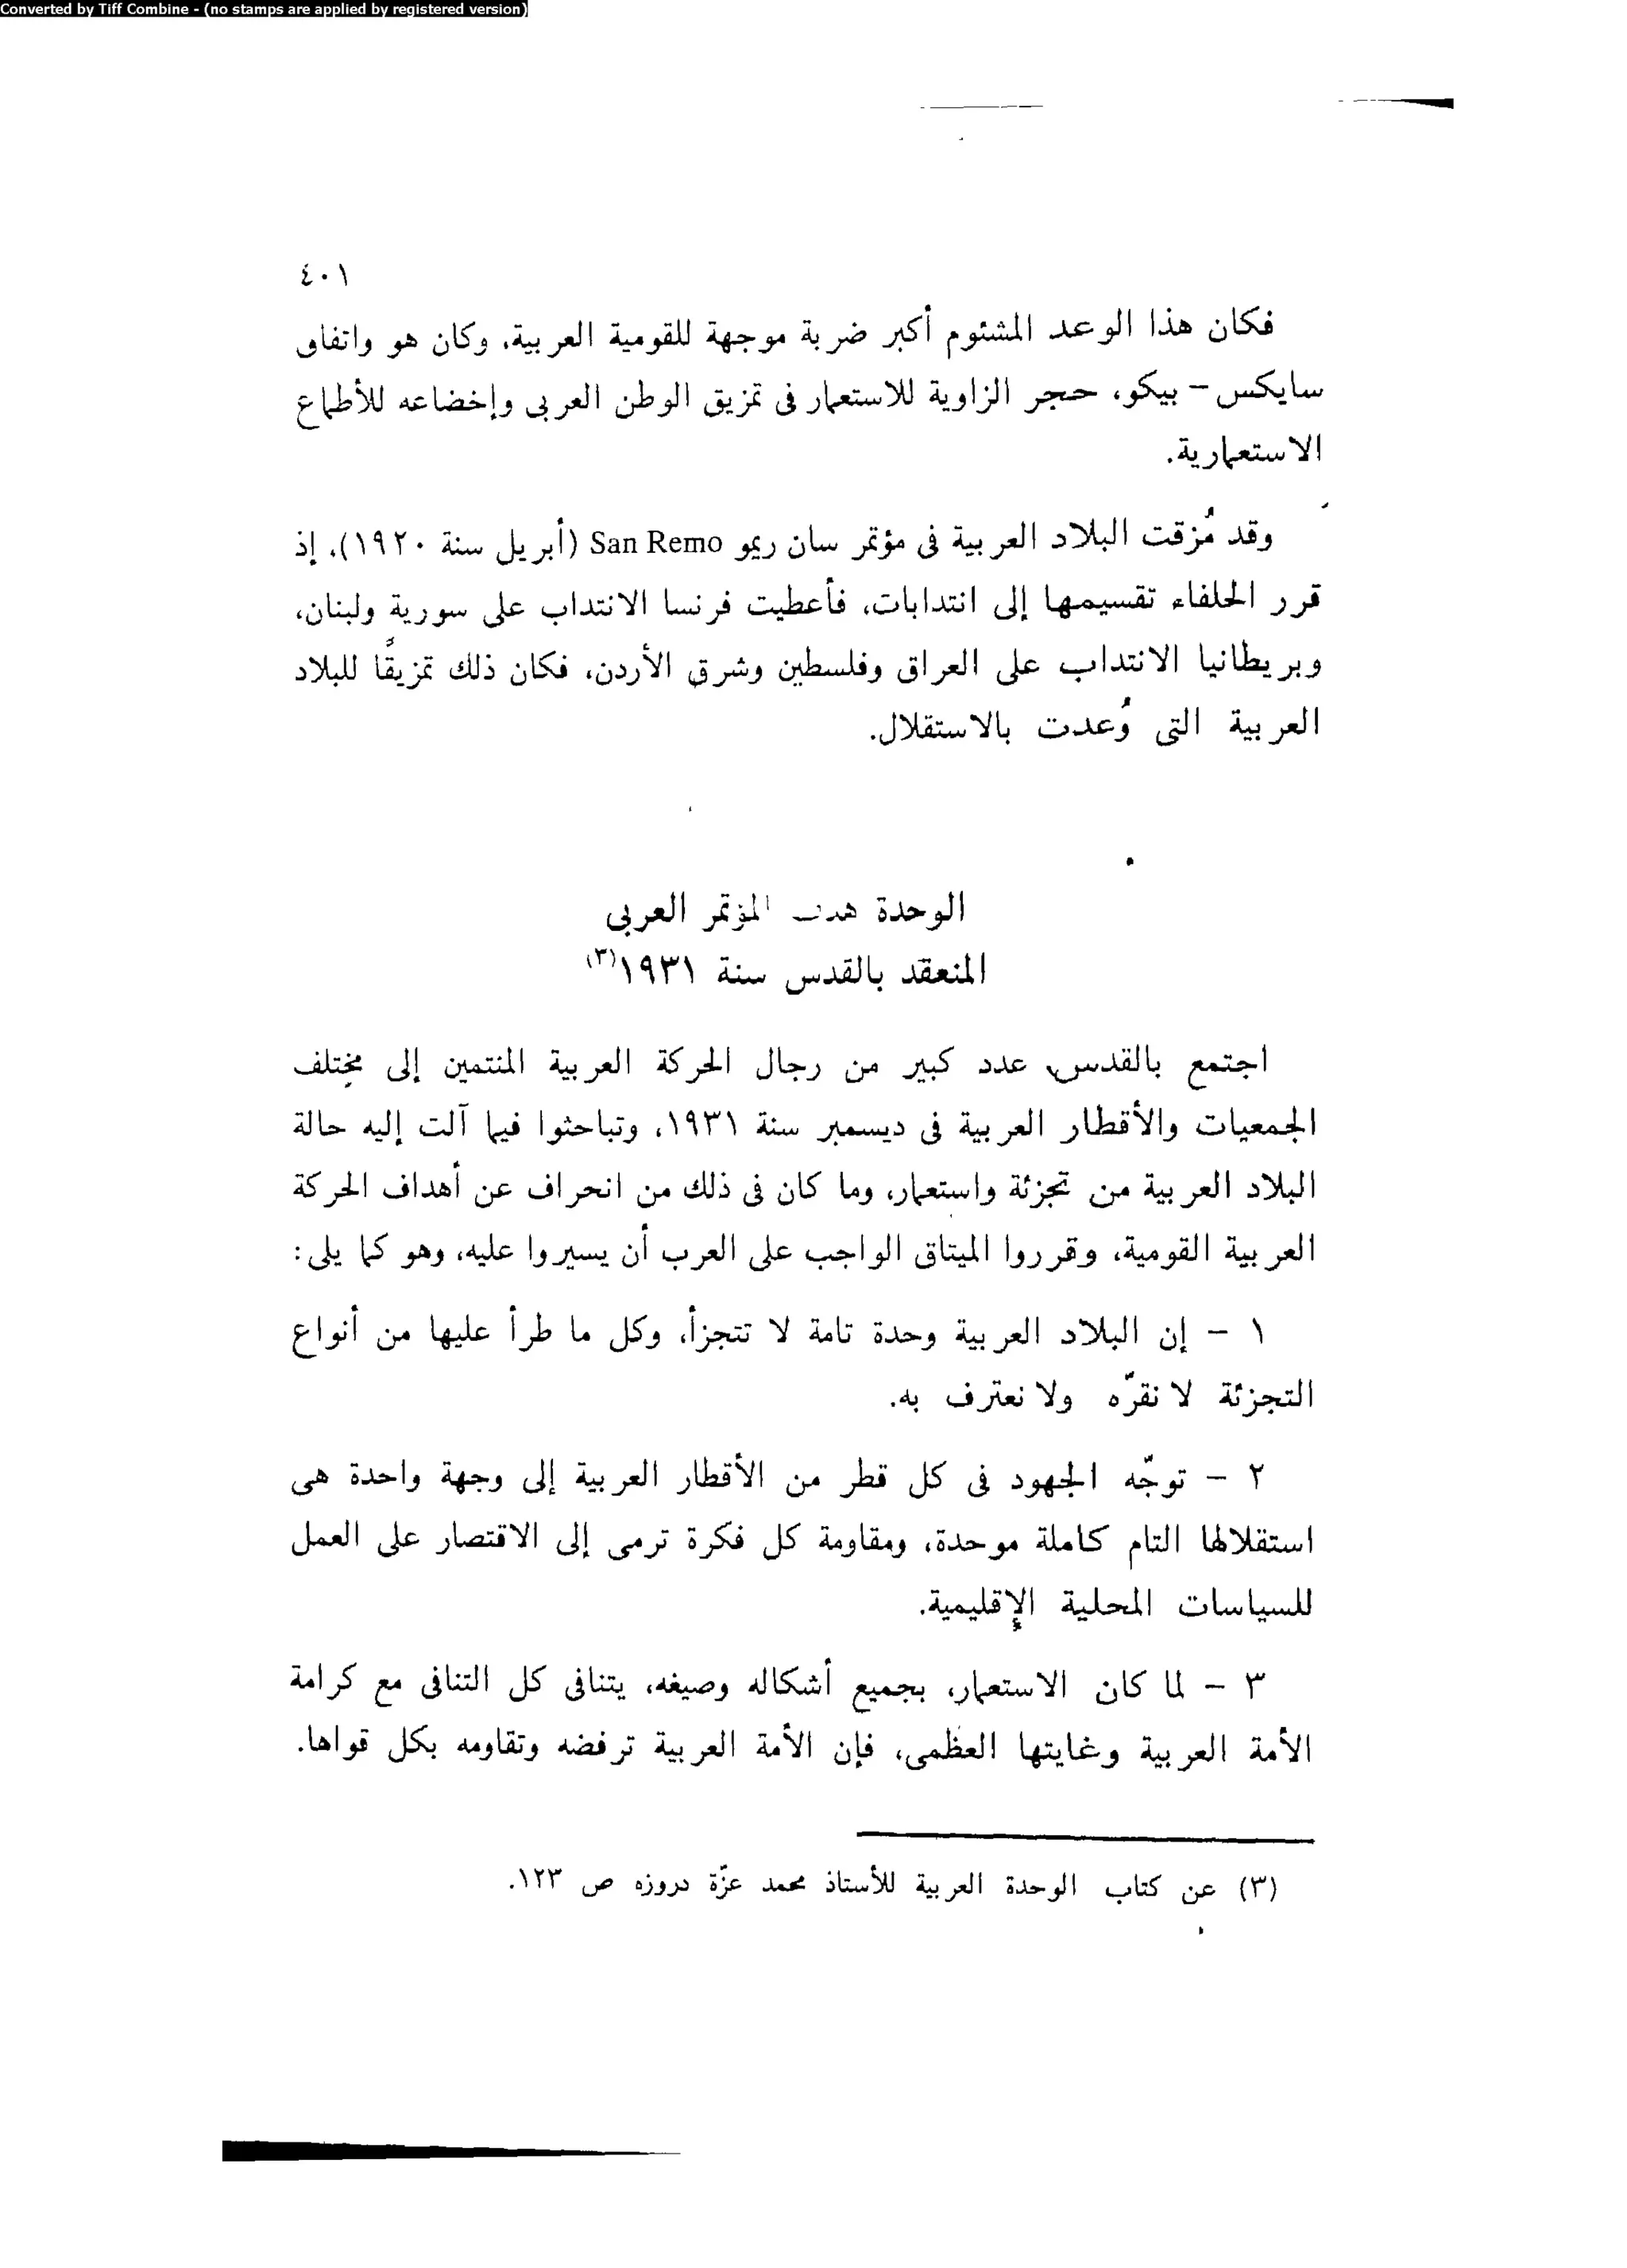 Converted by Tiff Combine - (no stamps are applied by registered version)
٤٠١
فكان هذا الوعد المشئوم أكبر ضربة موجهة للقومية العربية، وكان هو واتفاق
سايكس – بيكو، حجر الزاوية للاستعمار فى تمزيق الوطن العربى وإخضاعه للأطماع
الاستعمارية.
وقد مُزقت البلاد العربية فى مؤتمر سان ريمو San Remo (أبريل سنة ١٩٢٠)، إذ
قرر الحلفاء تقسيمها إلى انتدابات، فأعطيت فرنسا الانتداب على سورية ولبنان،
وبريطانيا الانتداب على العراق وفلسطين وشرق الأردن، فكان ذلك تمزيقًا للبلاد
العربية التى وُعدت بالاستقلال.
الوحدة هدف المؤتمر العربى
المنعقد بالقدس سنة ١٩٣١(٣)
اجتمع بالقدس عدد كبير من رجال الحركة العربية المنتمين إلى مختلف
الجمعيات والأقطار العربية فى ديسمبر سنة ١٩٣١، وتباحثوا فيما آلت إليه حالة
البلاد العربية من تجزئة واستعمار، وما كان فى ذلك من انحراف عن أهداف الحركة
العربية القومية، وقرروا الميثاق الواجب على العرب أن يسيروا عليه، وهو كما يلى:
١ – إن البلاد العربية وحدة تامة لا تتجزأ، وكل ما طرأ عليها من أنواع
التجزئة لا نقرّه ولا نعترف به.
٢ – توجّه الجهود فى كل قطر من الأقطار العربية إلى وجهة واحدة هى
استقلالها التام كاملة موحدة، ومقاومة كل فكرة ترمى إلى الاقتصار على العمل
للسياسات المحلية الإقليمية.
٣ – لما كان الاستعمار، بجميع أشكاله وصيغه، يتنافى كل التنافى مع كرامة
الأمة العربية وغايتها العظمى، فإن الأمة العربية ترفضه وتقاومه بكل قواها.
(٣) عن كتاب الوحدة العربية للأستاذ محمد عزّة دروزه ص ١٢٣.